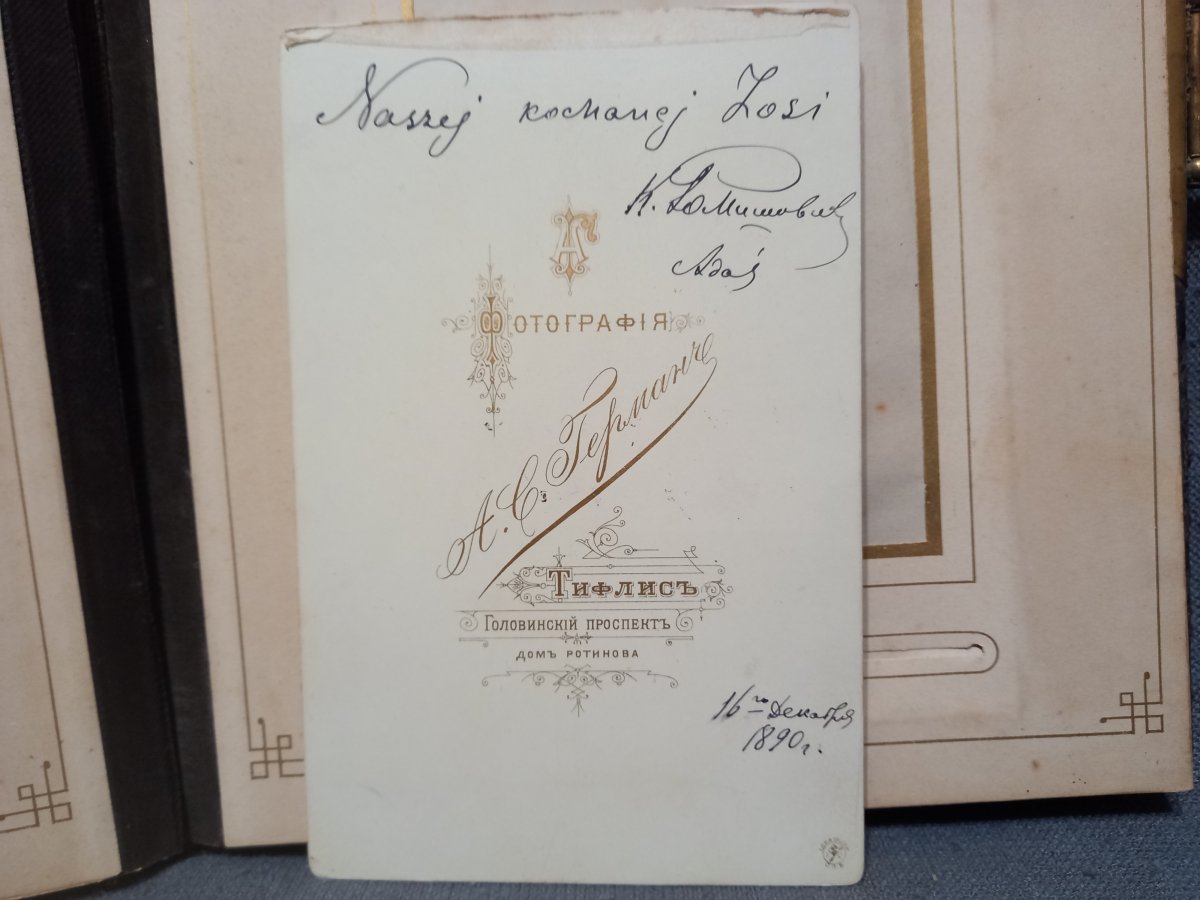 Naszej kochanej Zosi
К.
АГ
ФОТОГРАФІЯ
А. С. Германъ
ТИФЛИСЪ
ГОЛОВИНСКІЙ ПРОСПЕКТЪ
ДОМЪ РОТИНОВА
16го Декабря
1890 г.